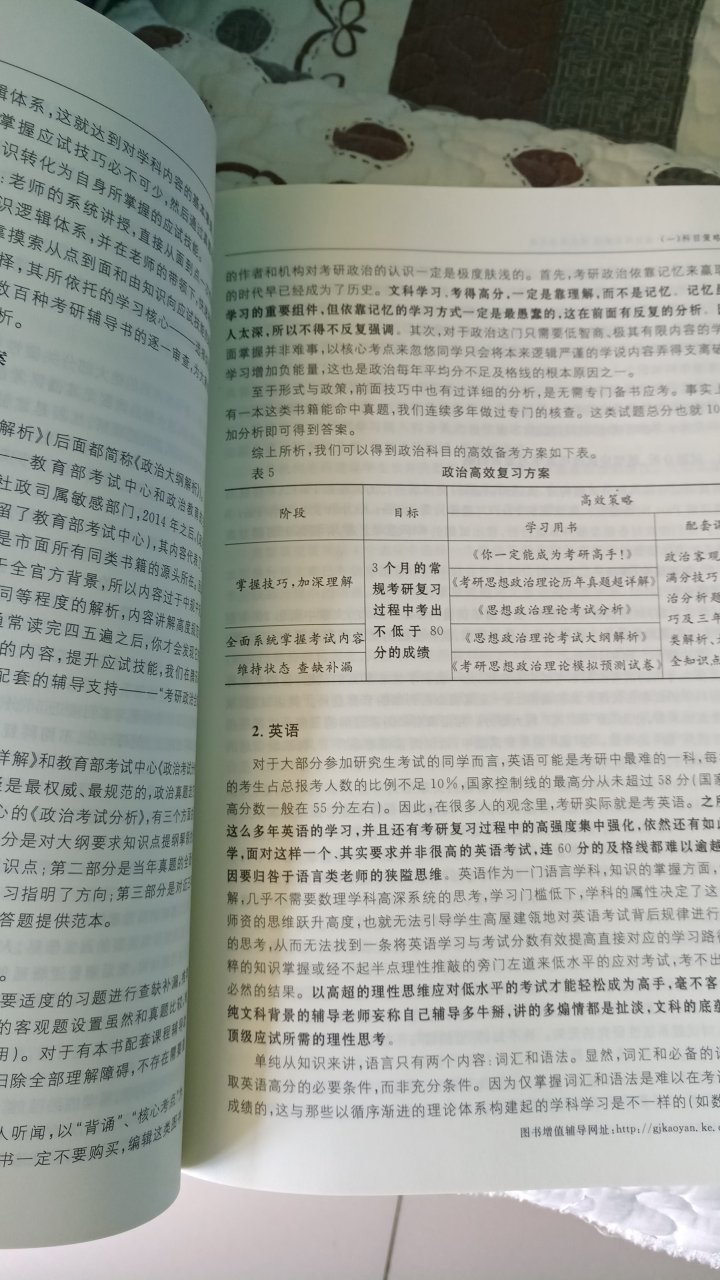 辑体系，这就达到对学科内容的基本
掌握应试技巧必不可少，然后通过
识转化为自身所掌握的应试技能。
：老师的系统讲授，直接从面到点
识逻辑体系，并在老师的带领下，快
摸索从点到面和由知识向应试技能
择，其所依托的学习核心——选择
数百种考研辅导书的逐一审查，为
析。
案
解析》(后面都简称《政治大纲解析》)，
——教育部考试中心和政治教
社政司属敏感部门，2014年之后，
留了教育部考试中心)，其内容代表
是市面所有同类书籍的源头所在。
于全官方背景，所以内容过于
同等程度的解析，内容讲解高度
通常读完四五遍之后，你才会发现
的内容，提升应试技能，我们在
配套的辅导支持———“考研政治
详解》和教育部考试中心《政治考试分
是最权威、最规范的，政治真题
心的《政治考试分析》，有三个方面
分是对大纲要求知识点提纲挈领的
识点；第二部分是当年真题的全
习指明了方向；第三部分是对近
答题提供范本。
。
要适度的习题进行查缺补漏，
的客观题设置虽然和真题比较
用)。对于有本书配套课程辅导
扫除全部理解障碍，不存在需要
人听闻，以“背诵”、“核心考点”
书一定不要购买，编辑这类图书
(一)科目策略
的作者和机构对考研政治的认识一定是极度肤浅的。首先，考研政治依靠记忆来赢取
的时代早已经成为了历史。文科学习、考得高分，一定是靠理解，而不是记忆。记忆是
学习的重要组件，但依靠记忆的学习方式一定是最愚蠢的，这在前面有反复的分析。
人太深，所以不得不反复强调。其次，对于政治这门只需要低智商、极其有限内容的学
面掌握并非难事，以核心考点来忽悠同学只会将本来逻辑严谨的学说内容弄得支离破
学习增加负能量，这也是政治每年平均分不足及格线的根本原因之一。
至于形式与政策，前面技巧中也有过详细的分析，是无需专门备书应考。事实上
有一本这类书籍能命中真题，我们连续多年做过专门的核查。这类试题总分也就10
加分析即可得到答案。
综上所析，我们可以得到政治科目的高效备考方案如下表。
表5 政治高效复习方案
阶段 目标 高效策略
学习用书 配套课
掌握技巧，加深理解 3个月的常规考研复习过程中考出不低于80分的成绩 《你一定能成为考研高手！》 政治客观
《考研思想政治理论历年真题超详解》 满分技巧
《思想政治理论考试分析》 治分析题
全面系统掌握考试内容 《思想政治理论考试大纲解析》 巧及三年
类解析、
维持状态 查缺补漏 《考研思想政治理论模拟预测试卷》 全知识点
2.英语
对于大部分参加研究生考试的同学而言，英语可能是考研中最难的一科，每
的考生占总报考人数的比例不足10%，国家控制线的最高分从未超过58分(国家
高分数一般在55分左右)。因此，在很多人的观念里，考研实际就是考英语。之所
这么多年英语的学习，并且还有考研复习过程中的高强度集中强化，依然还有如此
学，面对这样一个、其实要求并非很高的英语考试，连60分的及格线都难以逾越
因要归咎于语言类老师的狭隘思维。英语作为一门语言学科，知识的掌握方面，
解，几乎不需要数理学科高深系统的思考，学习门槛低下，学科的属性决定了这
师资的思维跃升高度，也就无法引导学生高屋建瓴地对英语考试背后规律进行
的思考，从而无法找到一条将英语学习与考试分数有效提高直接对应的学习路径
粹的知识掌握或经不起半点理性推敲的旁门左道来低水平的应对考试，考不出
必然的结果。以高超的理性思维应对低水平的考试才能轻松成为高手，毫不客
纯文科背景的辅导老师妄称自己辅导多牛掰，讲的多煽情都是扯淡，文科的底蕴
顶级应试所需的理性思考。
单纯从知识来讲，语言只有两个内容：词汇和语法。显然，词汇和必备的语
取英语高分的必要条件，而非充分条件。因为仅掌握词汇和语法是难以在考试
成绩的，这与那些以循序渐进的理论体系构建起的学科学习是不一样的(如数
图书增值辅导网址：http://gjkaoyan.ke.